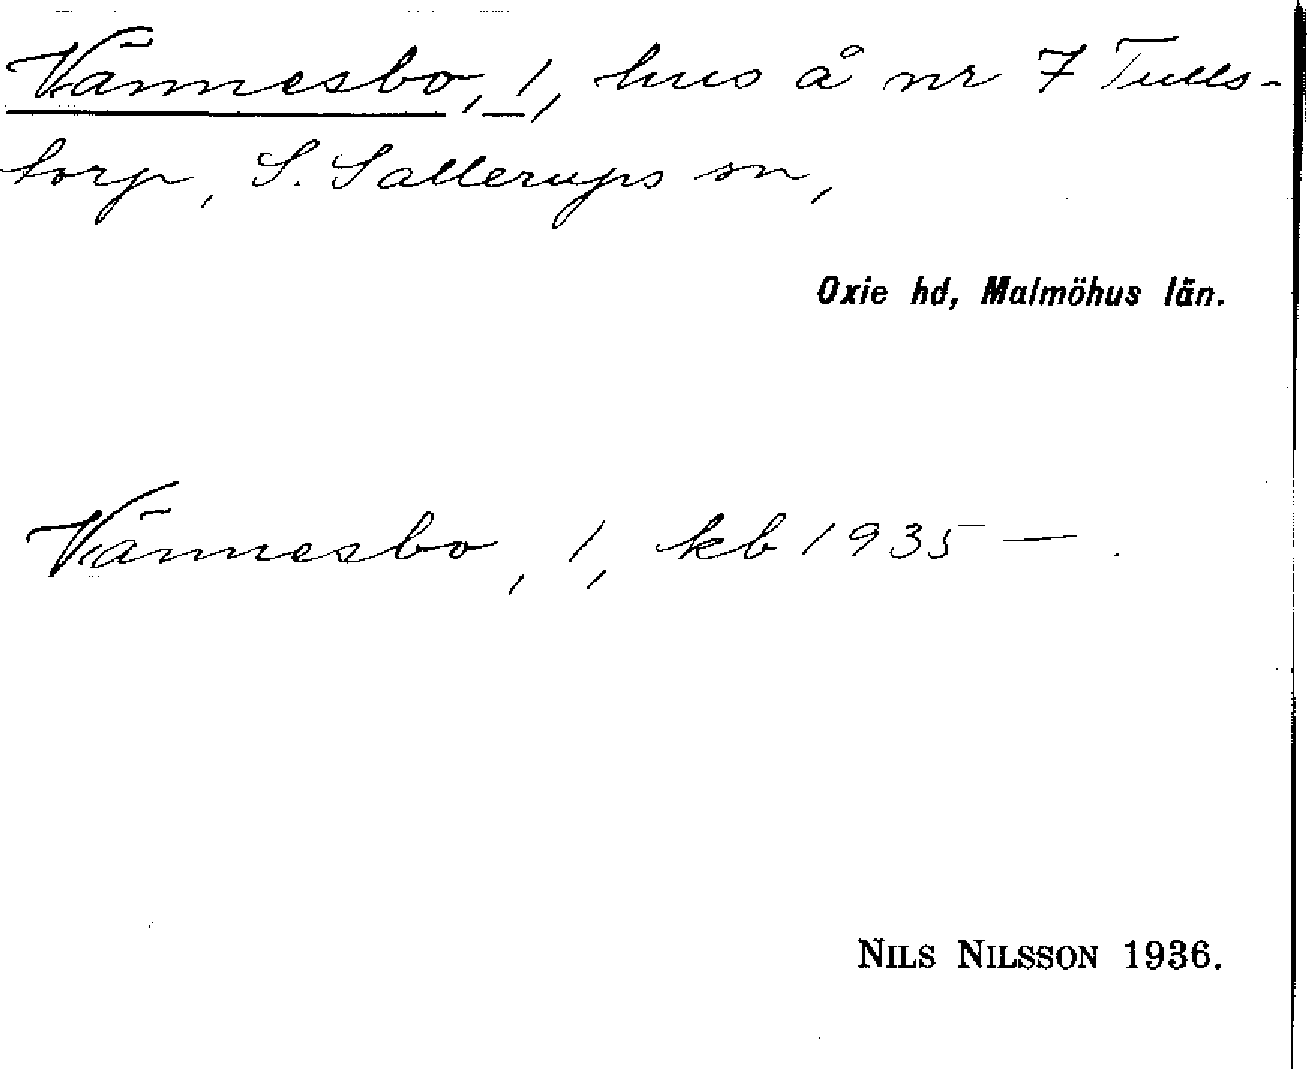 Vännesbo, 1, hus å nr 7 Tulls-
torp, S. Sallerups sn,
Oxie hd, Malmöhus län.
Vännesbo, 1, kb 1935 — .
NILS NILSSON 1936.